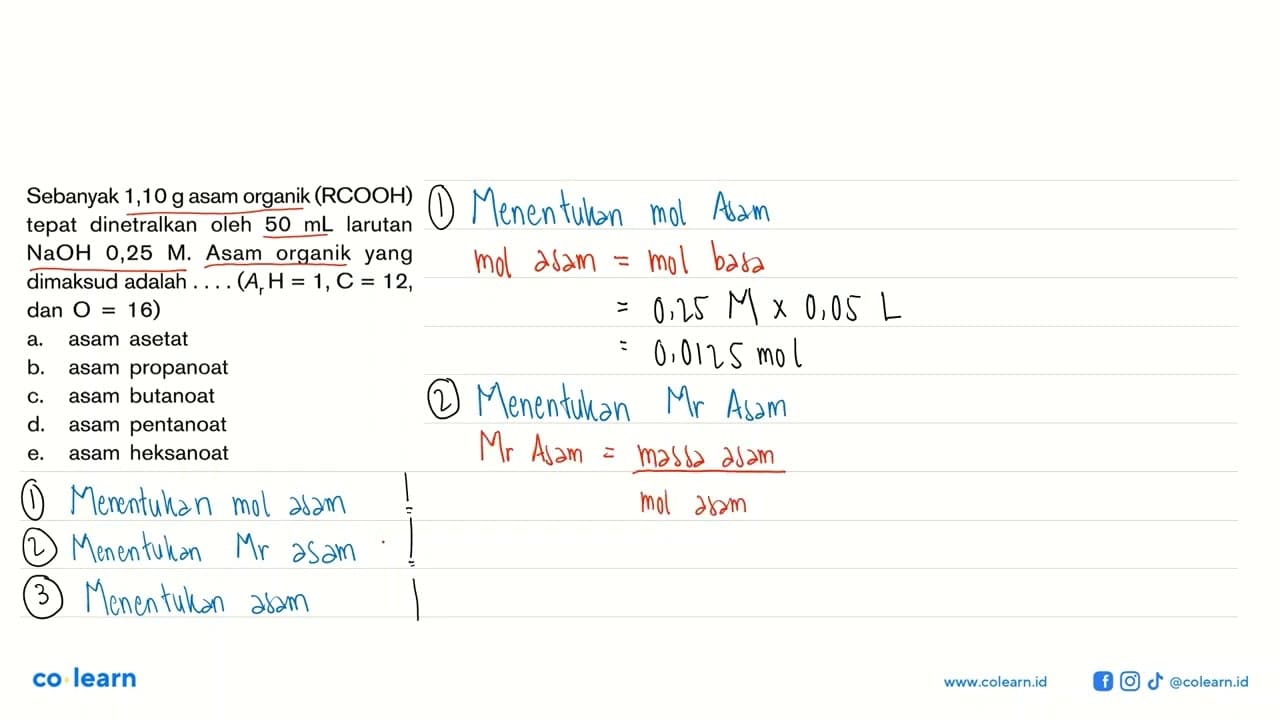 Sebanyak 1,10 g asam organik (RCOOH)
tepat dinetralkan oleh 50 mL larutan
NaOH 0,25 M. Asam organik yang
dimaksud adalah . . . . (Ar H = 1, C = 12,
dan O = 16)
a. asam asetat
b. asam propanoat
c. asam butanoat
d. asam pentanoat
e. asam heksanoat
① Menentukan mol asam
② Menentukan Mr asam
③ Menentukan asam
① Menentukan mol Asam
mol asam = mol basa
= 0,25 M x 0,05 L
= 0,0125 mol
② Menentukan Mr Asam
Mr Asam = massa asam
mol asam
co learn
www.colearn.id
@colearn.id